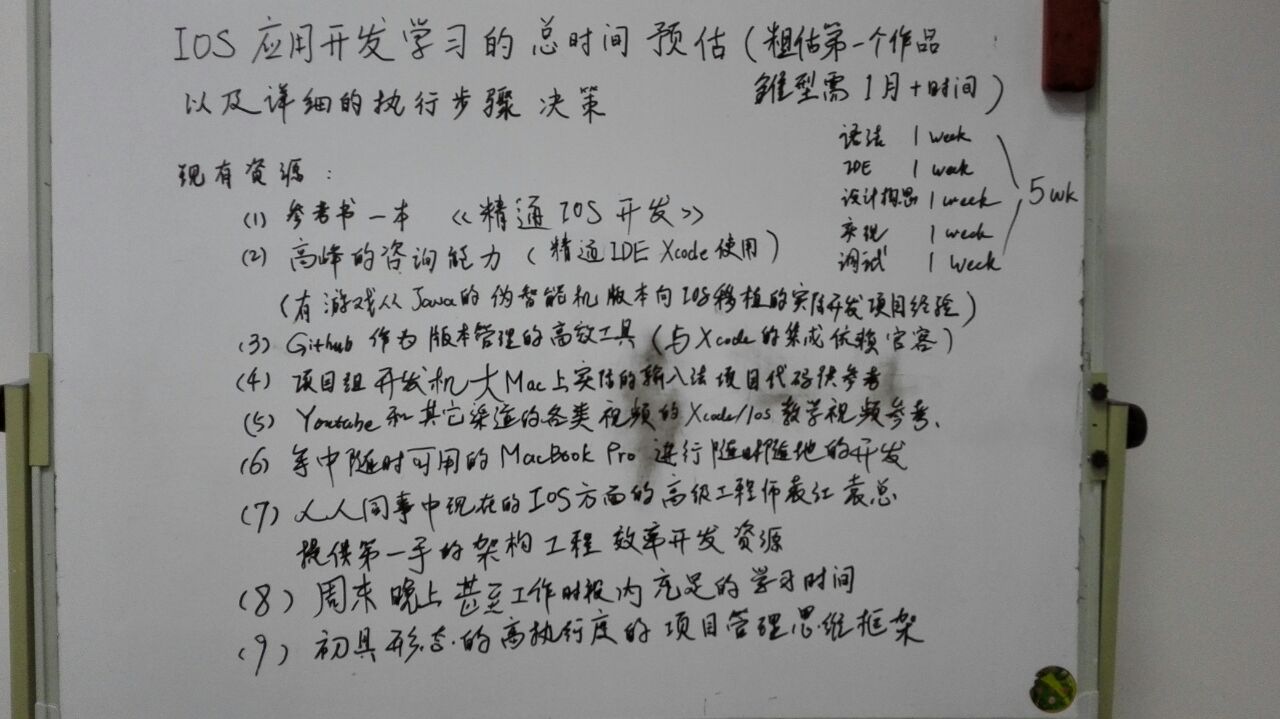 IOS 应用开发学习的总时间预估(粗估第一个作品
雏型需 1月+时间)
以及详细的执行步骤决策
语法 1 week
IDE 1 week
设计构思 1 week
实现 1 week
调试 1 week
5 wk
现有资源:
(1) 参考书一本 《精通IOS开发》
(2) 高峰的咨询能力 (精通IDE Xcode使用)
(有游戏从Java的伪智能机版本向IOS移植的实际开发项目经验)
(3) Github 作为版本管理的高效工具 (与Xcode的集成依赖官客)
(4) 项目组开发机大Mac上实际的输入法项目代码供参考
(5) Youtube和其它渠道的各类视频的Xcode/Ios教学视频参考、
(6) 手中随时可用的MacBook Pro 进行随时随地的开发
(7) 人人同事中现在的IOS方面的高级工程师袁红袁总
提供第一手的架构工程效率开发资源
(8) 周末晚上甚至工作时段内充足的学习时间
(9) 初具形态的高执行度的项目管理思维框架